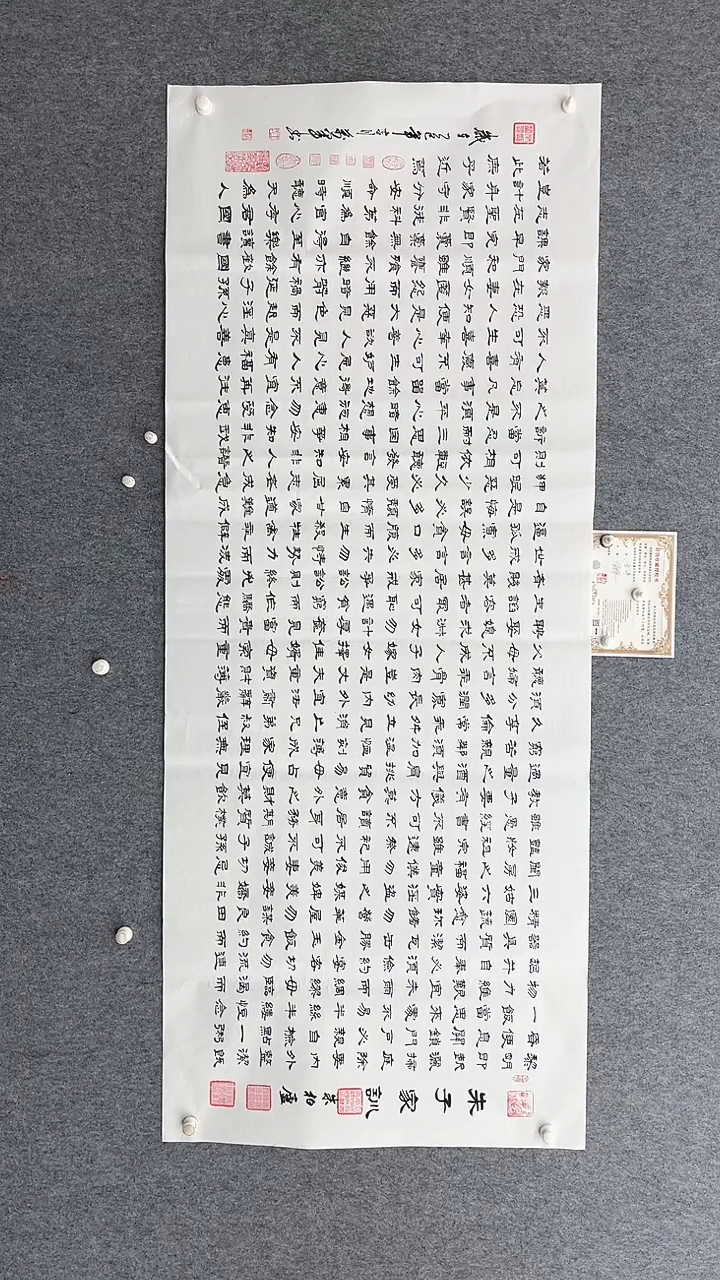 朱子家訓
朱柏廬
黎明即起灑掃庭除要內外整潔既
昏便息關鎖門戶必親自檢點一粥
一飯當思來處不易半絲半縷恆念
物力維艱宜未雨而綢繆毋臨渴而
掘井自奉必須儉約宴客切勿流連
器具質而潔瓦缶勝金玉飲食約而
精園蔬愈珍饈勿營華屋勿謀良田
三姑六婆實淫盜之媒婢美妾嬌非
閨房之福童僕勿用俊美妻妾切忌
豔妝祖宗雖遠祭祀不可不誠子孫
雖愚經書不可不讀居身務期質樸
教子要有義方勿貪意外之財勿飲
過量之酒與肩挑貿易毋占便宜見
窮苦親鄰須加溫恤刻薄成家理無
久享倫常乖舛立見消亡兄弟叔姪
須分多潤寡長幼內外宜法肅辭嚴
聽婦言乖骨肉豈是丈夫重資財薄
父母不成人子嫁女擇佳婿毋索重
聘娶媳求淑女勿計厚奩見富貴而
生諂容者最可恥遇貧窮而作驕態
者賤莫甚居家戒爭訟訟則終凶處
世戒多言言多必失勿恃勢力而凌
逼孤寡毋貪口腹而恣殺牲禽乖僻
自是悔誤必多頹惰自甘家道難成
狎暱惡少久必受其累屈志老成急
則可相依輕聽發言安知非人之譖
訴當忍耐三思因事相爭焉知非我
之不是須平心暗想施惠無念受恩
莫忘凡事當留餘地得意不宜再往
人有喜慶不可生妒嫉心人有禍患
不可生喜幸心善欲人見不是真善
惡恐人知便是大惡見色而起淫心
報在妻女匿怨而用暗箭禍延子孫
家門和順雖饔飧不繼亦有餘歡國
課早完即囊橐無餘自得至樂讀書
志在聖賢非徒科第為官心存君國
豈計身家守分安命順時聽天為人
若此庶乎近焉